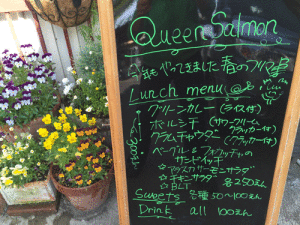 Queen Salmon
今年もやってきました春のフリマ
Lunch menu
グリーンカレー (ライス付)
ボルシチ (サワークリーム クラッカー付)
クラムチャウダー (クラッカー付)
ベーグル & フォカッチャの
サンドイッチ
☆ サーモンサラダ
☆ チキンサラダ
☆ BLT 各250えん
Sweets 各種 50〜100えん
Drink all 100えん